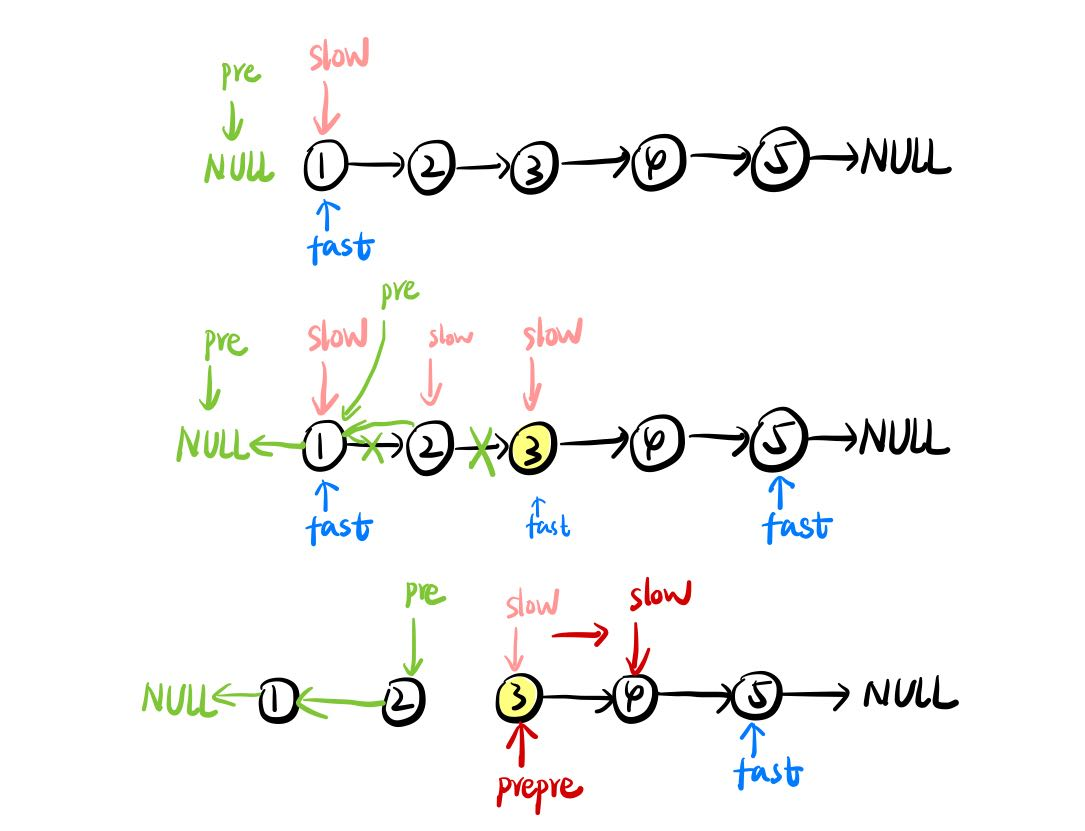 pre slow
NULL 1 2 3 4 5 NULL
fast
pre
pre slow slow slow
NULL 1 2 3 4 5 NULL
fast fast fast
pre slow slow
NULL 1 2 3 4 5 NULL
prepre fast